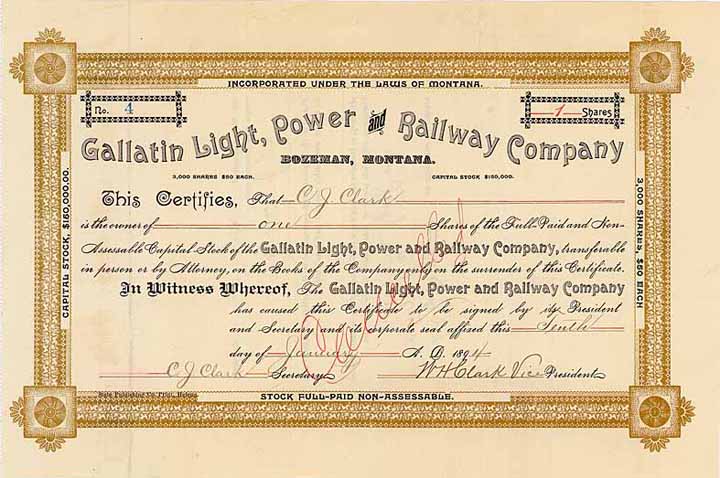 INCORPORATED UNDER THE LAWS OF MONTANA.
No. 4
1 Shares
Gallatin Light, Power and Railway Company
BOZEMAN, MONTANA.
3,000 SHARES $50 EACH.
CAPITAL STOCK $150,000.
This Certifies, That C J Clark
is the owner of one Shares of the Full-Paid and Non-
Assessable Capital Stock of the Gallatin Light, Power and Railway Company, transferable
in person or by Attorney, on the Books of the Company only on the surrender of this Certificate.
In Witness Whereof, The Gallatin Light, Power and Railway Company
has caused this Certificate to be signed by its President
and Secretary and its corporate seal affixed this Tenth
day of January A. D. 1894
C J Clark Secretary
W H Clark Vice President
State Publishing Co. Print, Helena
STOCK FULL-PAID NON-ASSESSABLE.
CAPITAL STOCK, $150,000.00.
3,000 SHARES, $50 EACH
Cancelled